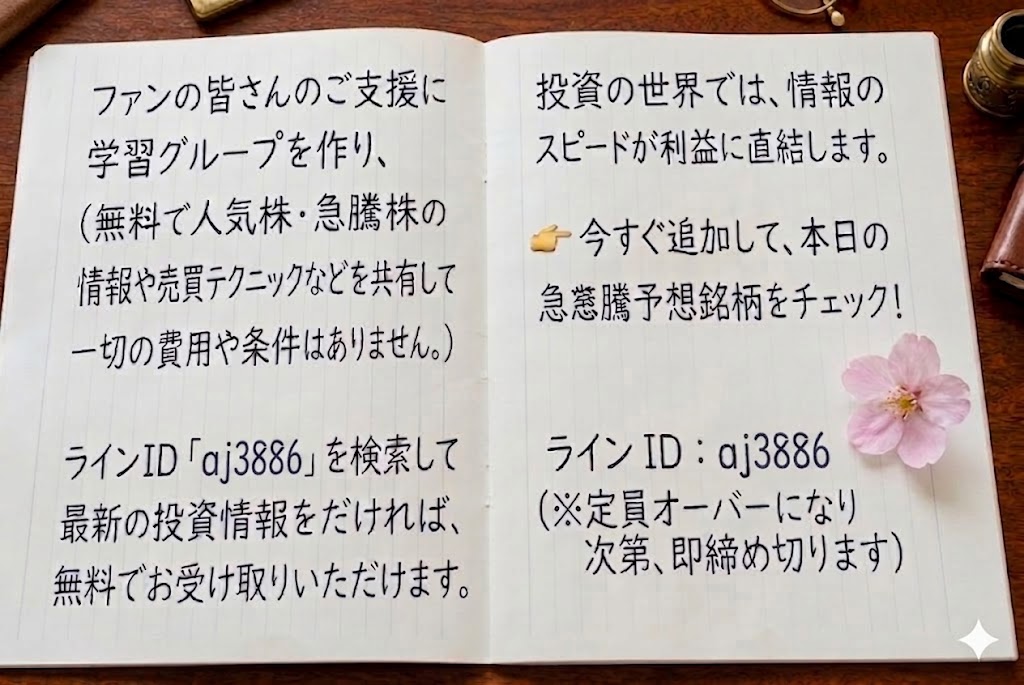 ファンの皆さんのご支援に
学習グループを作り、
(無料で人気株・急騰株の
情報や売買テクニックなどを共有して
一切の費用や条件はありません。)
ラインID「aj3886」を検索して
最新の投資情報をだければ、
無料でお受け取りいただけます。
投資の世界では、情報の
スピードが利益に直結します。
👉 今すぐ追加して、本日の
騰予想銘柄をチェック!
ライン ID:aj3886
(※定員オーバーになり
次第、即締め切ります)